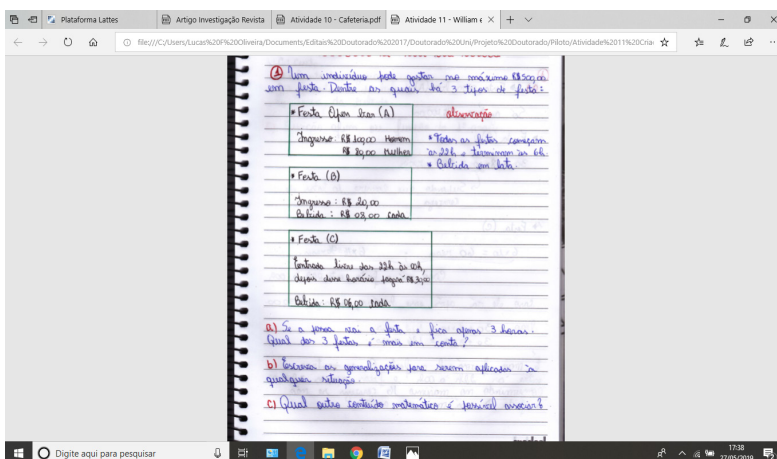 Plataforma Lattes
Artigo Investigação Revista
Atividade 10 - Cafeteria.pdf
Atividade 11 - William e
file:///C:/Users/Lucas%20F%20Oliveira/Documents/Editais%20Doutorado%202017/Doutorado%20Uni/Projeto%20Doutorado/Piloto/Atividade%2011%20Cria
① Um indivíduo pode gastar no máximo R$500,00
em festa. Dentre as quais há 3 tipos de festa:
• Festa Open bar (A)
observação
Ingresso: R$ 100,00 Homem
R$ 80,00 Mulher
• Todas as festas começam
às 22h e terminam às 6h.
• Bebida em lata.
• Festa (B)
Ingresso: R$ 20,00
Bebida: R$ 03,00 cada
• Festa (C)
Entrada livre das 22h às 00h,
depois desse horário
Bebida: R$ 06,00 cada
a) Se a pessoa vai a festa e fica apenas 3 horas.
Qual das 3 festas é mais em conta?
b) Escreva as generalizações para serem aplicadas à
qualquer situação.
c) Qual outro conteúdo matemático é possível associar?
Digite aqui para pesquisar
17:38
27/05/2019